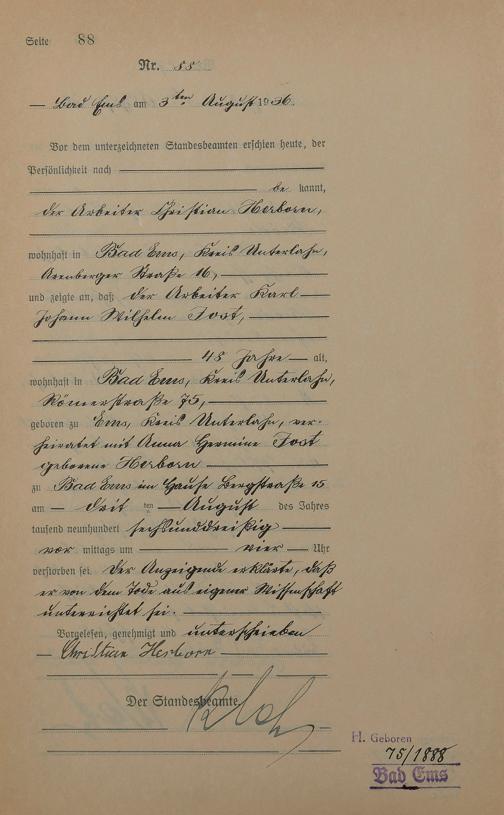 Seite 88
Nr. 88
Bad Ems am 3ten August 1936.
Vor dem unterzeichneten Standesbeamten erschien heute, der
Persönlichkeit nach
be kannt,
der Arbeiter Christian Herborn,
wohnhaft in Bad Ems, Kreis Unterlahn,
Arenberger Straße 16,
und zeigte an, daß der Arbeiter Karl
Johann Wilhelm Jost,
48 Jahre alt,
wohnhaft in Bad Ems, Kreis Unterlahn,
Römerstraße 75,
geboren zu Ems, Kreis Unterlahn, ver-
heiratet mit Anna Hermine Jost
geborene Herborn
zu Bad Ems im Hause Bergstraße 15
am drit ten August des Jahres
tausend neunhundert sechsunddreißig
vor mittags um vier Uhr
verstorben sei. Der Anzeigende erklärte, daß
er von dem Tode aus eigener Wissenschaft
unterrichtet sei.
Vorgelesen, genehmigt und unterschrieben
Christian Herborn
Der Standesbeamte
H. Geboren
75/1888
Bad Ems